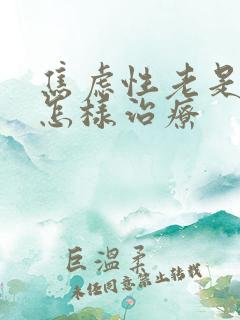 焦虑性老是
怎样治療
巨溫柔
未经同意禁止转载